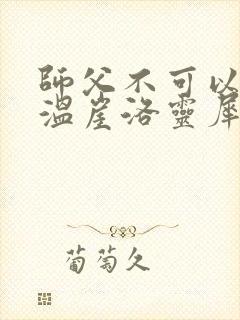 師父不可以
溫崖洛靈犀
葡萄久